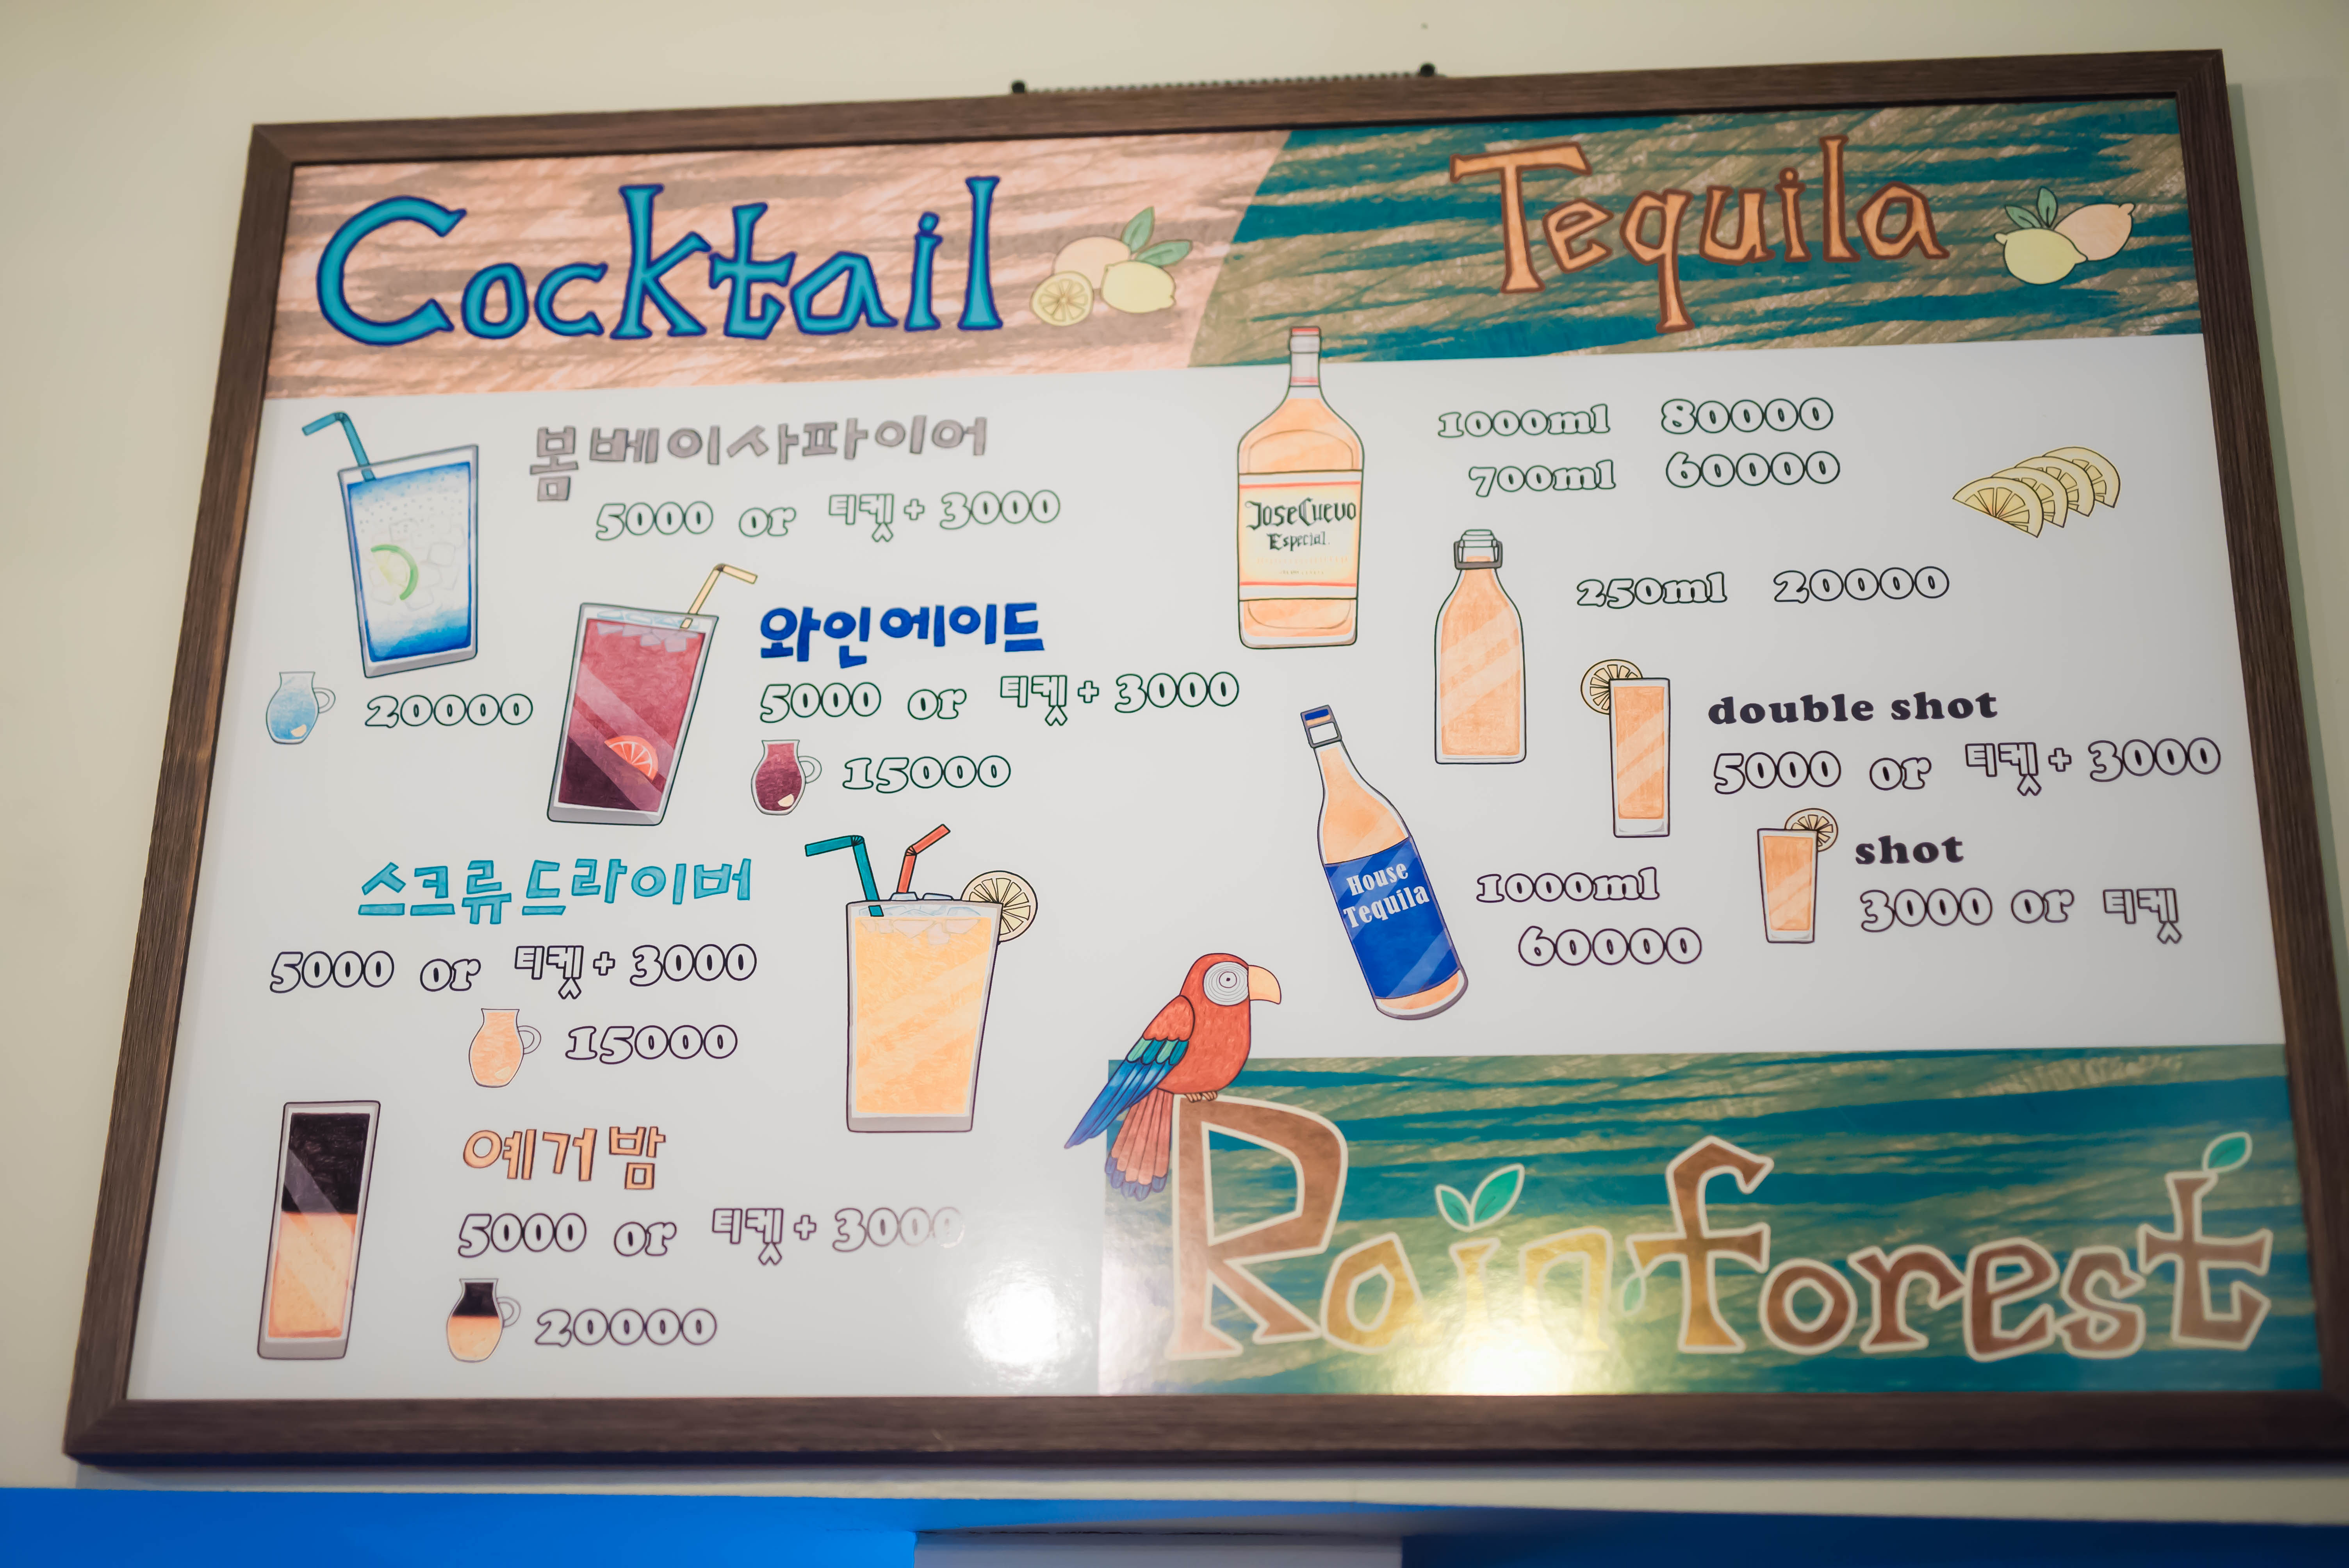 Cocktail
봄베이사파이어
5000 or 티켓 + 3000
20000
와인에이드
5000 or 티켓 + 3000
15000
스크류드라이버
5000 or 티켓 + 3000
15000
예거밤
5000 or 티켓 + 3000
20000
Tequila
Jose Cuevo
Especial
1000ml 80000
700ml 60000
250ml 20000
double shot
5000 or 티켓 + 3000
shot
3000 or 티켓
House
Tequila
1000ml
60000
Rainforest